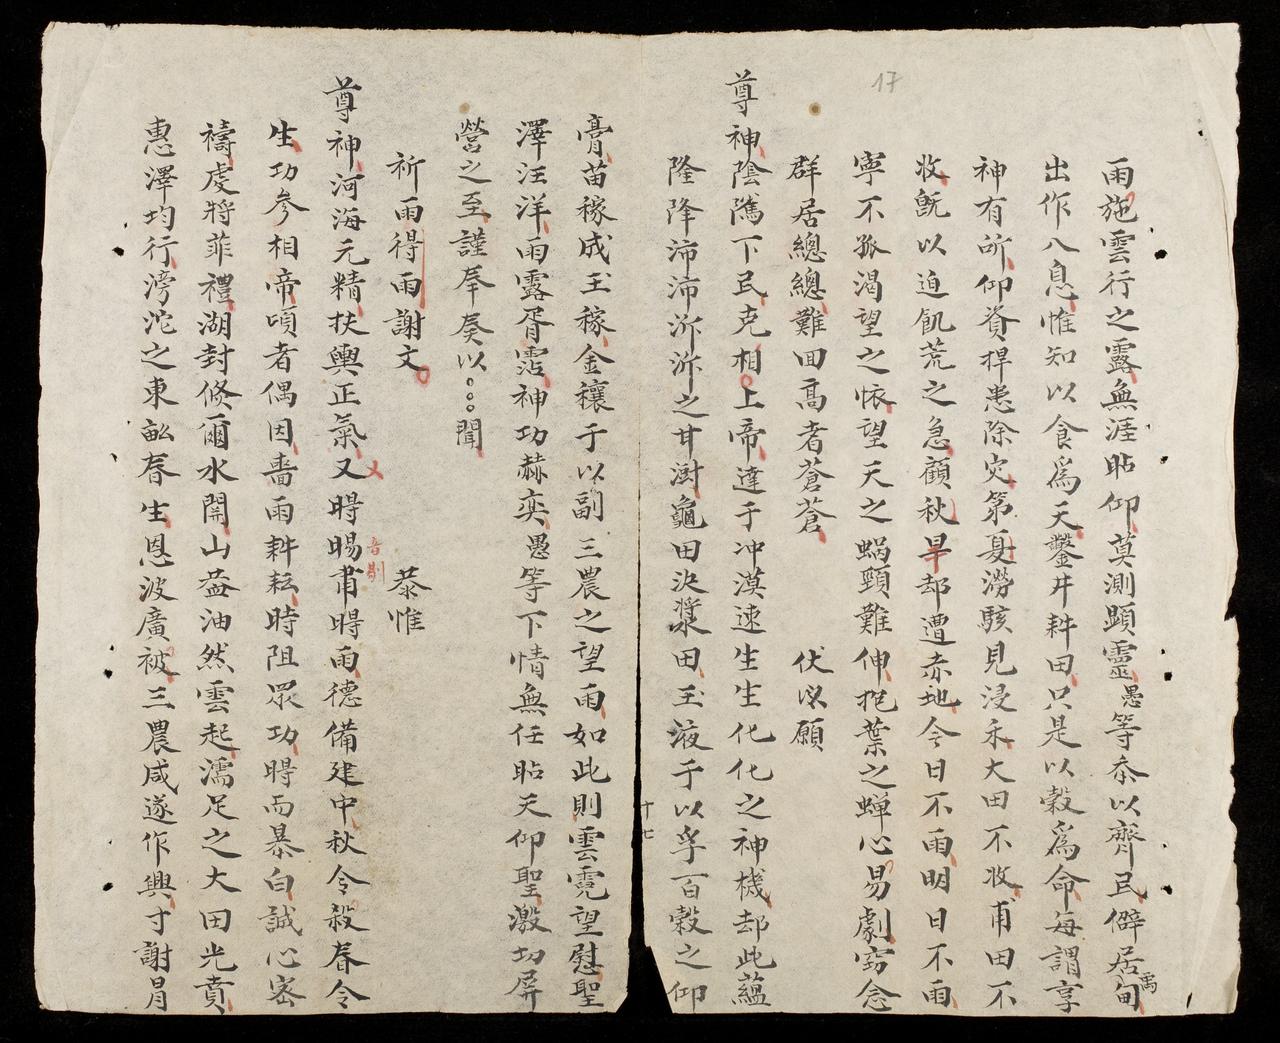 17
雨施雲行之露無涯眙仰莫測顕靈愚等忝以齊民僻居甸
禹
出作入息惟知以食爲天鑿井耕田只是以穀爲命每謂享
神有所仰資捍患除灾第夏澇駭見浸禾大田不收甫田不
收旣以迫飢荒之急顧秋旱却遭赤地今日不雨明日不雨
寧不孤渴望之悵望天之蝸頸難伸抱葉之蟬心易劇窃念
群居總總難囬高者蒼蒼 伏以願
尊神陰隲下民克相上帝達于冲漠速生生化化之神機却此蘊
隆隆降沛沛沵沵之甘澍龜田決漿田玉液于以孚百穀之仰
膏苗稼成玉稼金穰于以副三農之望雨如此則雲霓望慰聖
澤汪洋雨露胥霑神功赫奕愚等下情無任眙天仰聖激切屏
營之至謹奉奏以聞
祈雨得雨謝文 恭惟
尊神河海元精扶輿正氣乂時暘肅時雨德備建中秋令殺春令
乂
音剔
生功参相帝頃者偶因嗇雨耕耘時阻眾功時而暴白誠心密
禱虔將菲禮湖封倏爾水開山益油然雲起濡足之大田光賁
惠澤均行滂沱之東畝春生恩波廣被三農咸遂作興寸謝月
十七